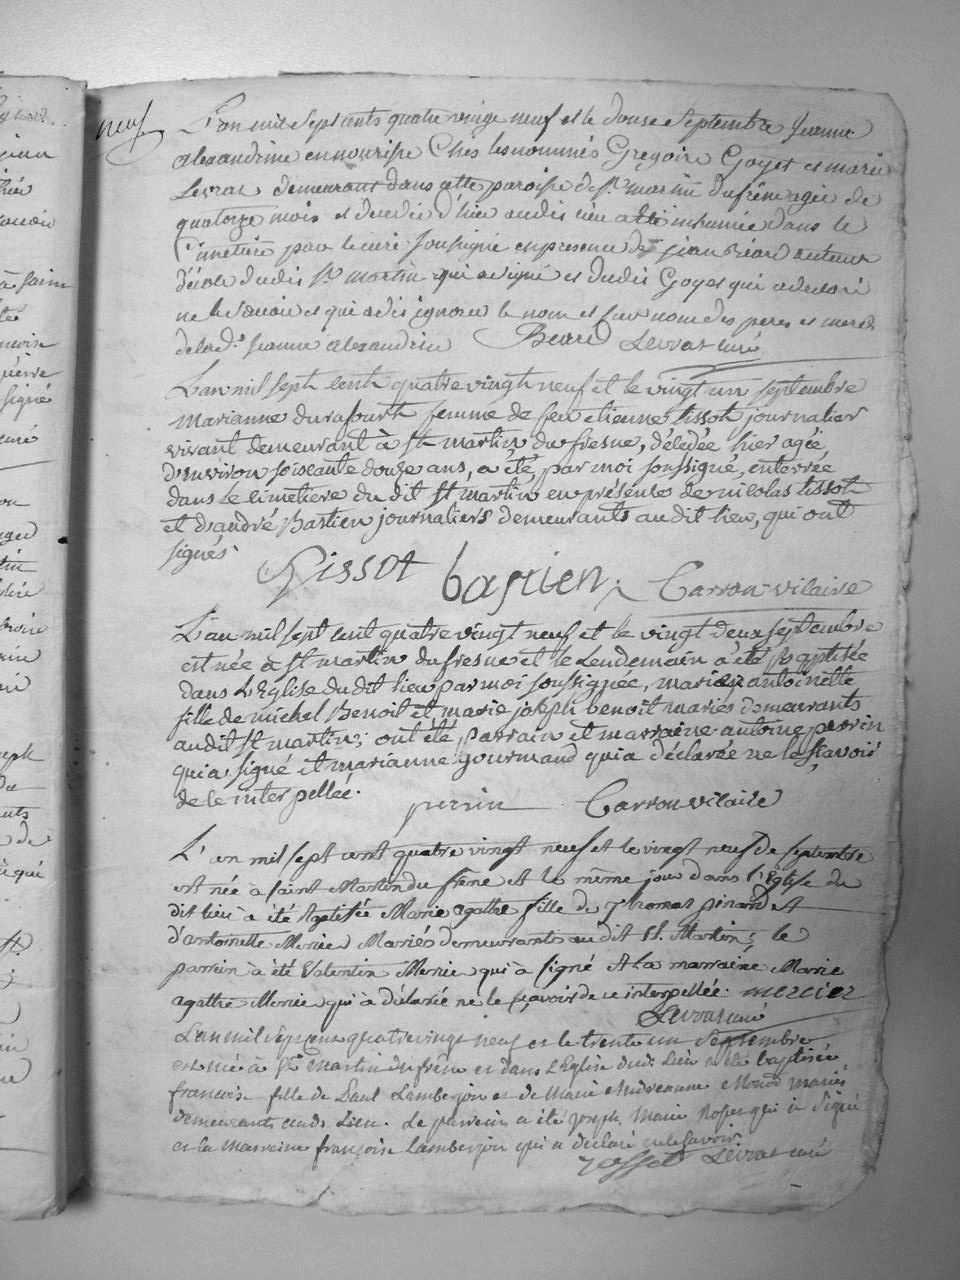 neuf
L'an mil sept cents quatre vingt neuf et le douse Septembre Jeanne
alexandrine en nourisse Chés les nommés Gregoire Goyet et marie
Levrat demeurants dans cette paroisse de St martin du frêne agée de
quatorze mois et decedée d'hier audit lieu a été inhumée dans le
Cimetiere par le curé soussigné en presence de jean Beard
d'école dudit St martin qui a signé et dudit Goyet qui a declaré
ne le savoir et qui a dit ignorer le nom et surnom des peres et meres
de lad.e Jeanne alexandrine Beard Levrat curé
L'an mil sept cent quatre vingt neuf et le vingt un septembre
marianne durafourt femme de feu etienne tissot journalier
vivant demeurant à st martin du fresne, décédée hier agée
d'environ soiscante douze ans, a été, par moi soussigné, enterrée
dans le cimetiere du dit st martin en présence de nicolas tissot
et d'andré Bastien journaliers demeurants au dit lieu, qui ont
signés.
Tissot bastien Carron vilaire
L'an mil sept cent quatre vingt neuf et le vingt deux septembre
est née à st martin du fresne et le Lendemain a été Baptisée
dans L'Eglise du dit lieu par moi soussignée, marie antoinette
fille de michel Benoit et marie joseph benoit mariés demeurants
au dit st martin; ont été parrain et marraine antoine perrin
qui a signé et marianne gourmand qui a déclarée ne le sçavoir
de ce interpellée.
perrin Carron vilaire
L'an mil sept cent quatre vingt neuf et le vingt neuf de septembre
est née à saint Martin du frêne et le même jour dans l'Eglise du
dit lieu à été Baptisée Marie agathe fille de Thomas pinard et
d'antoinette Mercier Mariés demeurrants au dit St. Martin; le
parrein à été Valentin Mercier qui à signé et la marraine Marie
agathe Mercier qui à déclarée ne le sçavoir de ce interpellée. mercier
Levrat curé
L'an mil sept cent quatre vingt neuf et le trente un Septembre
est née à St Martin du frêne et dans L'Eglise dudt Lieu a été baptisée
françoise fille de Paul Lamberjon et de Marie Andreanne mariés
demeurants audt Lieu. Le parrein a été joseph Marie qui à signé
et la marreine françoise Lamberjon qui a déclaré ne le savoir.
Levrat curé